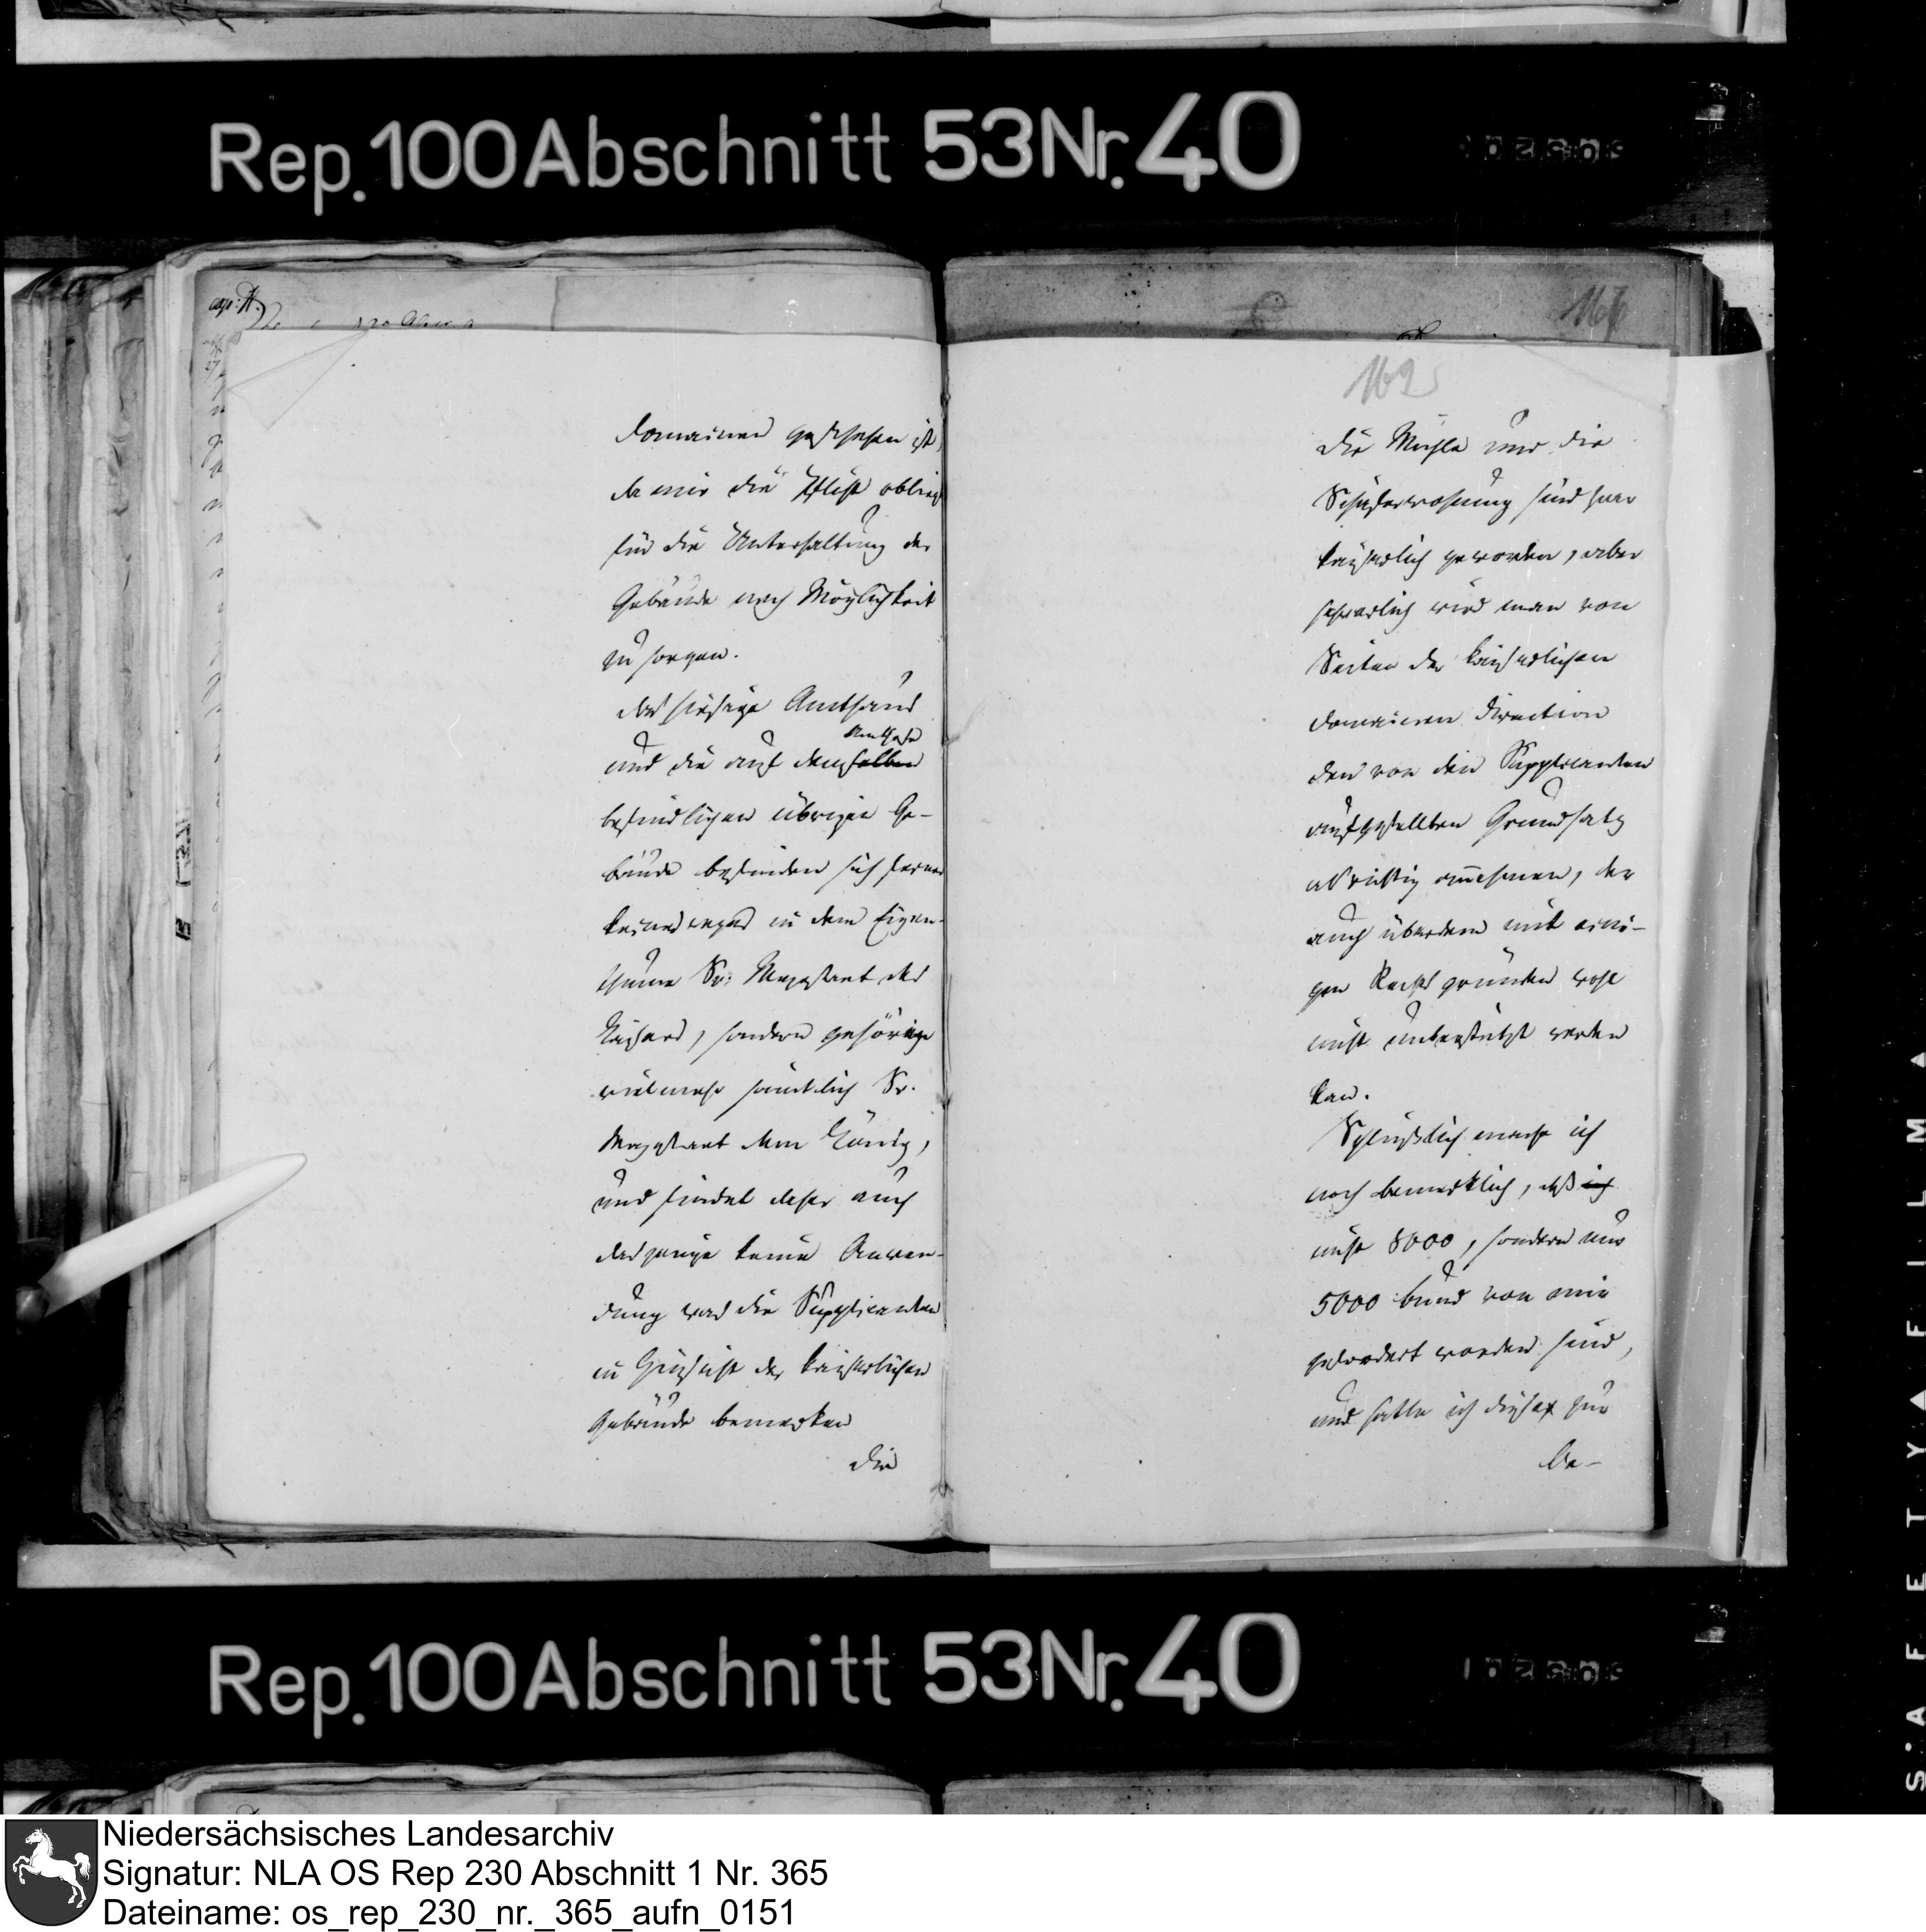 Rep. 100 Abschnitt 53 Nr. 40
167
162
Domainen geschehen ist,
da mir die Pflicht obliegt
für die Unterhaltung der
Gebäude nach Möglichkeit
zu sorgen.
Das hiesige Amthaus
Amthofe
und die auf demselben
befindlichen übrigen Ge-
bäude befinden sich ferner
keinesweges in dem Eigen-
thume Sr. Majestaet des
Kaisers, sondern gehören
vielmehr sämtlich Sr.
Majestaet dem König,
und findet daher auch
dasjenige keine Anwen-
dung was die Supplicanten
in Hinsicht der kaiserlichen
Gebäude bemerken
Die
Die Mühle und die
Schäferwohnung sind zwar
kaiserlich geworden, aber
schwerlich wird man von
Seiten der kaiserlichen
Domainen Direction
den von den Supplicanten
aufgestellten Grundsatz
als richtig annehmen, der
auch überdem mit eini-
gen Rechtsgründen wohl
nicht unterstützt werden
kan.
Schlieslich mache ich
noch bemerklich, daß ich
nicht 8000, sondern nur
5000 bund von mir
gefordert worden sind,
und hatte ich dieses zur
Be-
Rep. 100 Abschnitt 53 Nr. 40
SAFETY FILM
Niedersächsisches Landesarchiv
Signatur: NLA OS Rep 230 Abschnitt 1 Nr. 365
Dateiname: os_rep_230_nr._365_aufn_0151